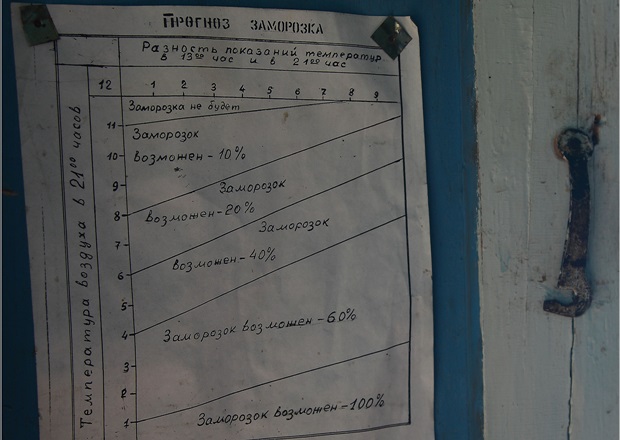 ПРОГНОЗ ЗАМОРОЗКА
Разность показаний температур
в 13⁰⁰ час и в 21⁰⁰ час
Температура воздуха в 21⁰⁰ часов
12 1 2 3 4 5 6 7 8 9
Заморозка не будет
11 Заморозок
10 возможен - 10%
9 Заморозок
8 возможен - 20%
7 Заморозок
6 возможен - 40%
5
4 Заморозок возможен - 60%
3
2
1 Заморозок возможен - 100%